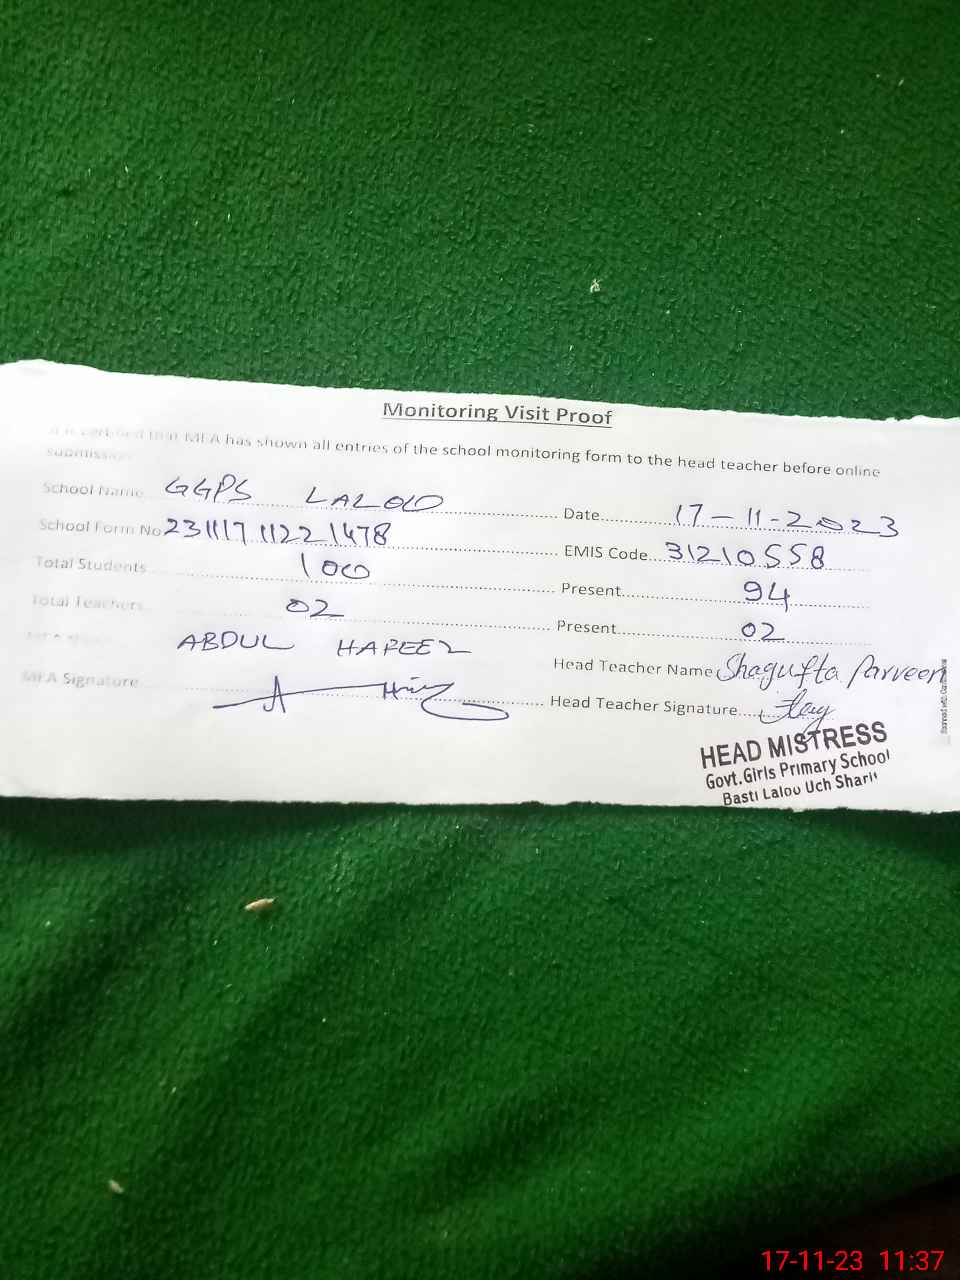 Monitoring Visit Proof
It is certified that MEA has shown all entries of the school monitoring form to the head teacher before online
submission
School Name GGPS LALOO Date 17-11-2023
School Form No 23111711221478 EMIS Code 31210558
Total Students 100 Present 94
Total Teachers 02 Present 02
ABDUL HAFEEZ Head Teacher Name Shagufta Parveen
MEA Signature Head Teacher Signature
HEAD MISTRESS
Govt.Girls Primary School
Basti Laloo Uch Sharif
17-11-23 11:37